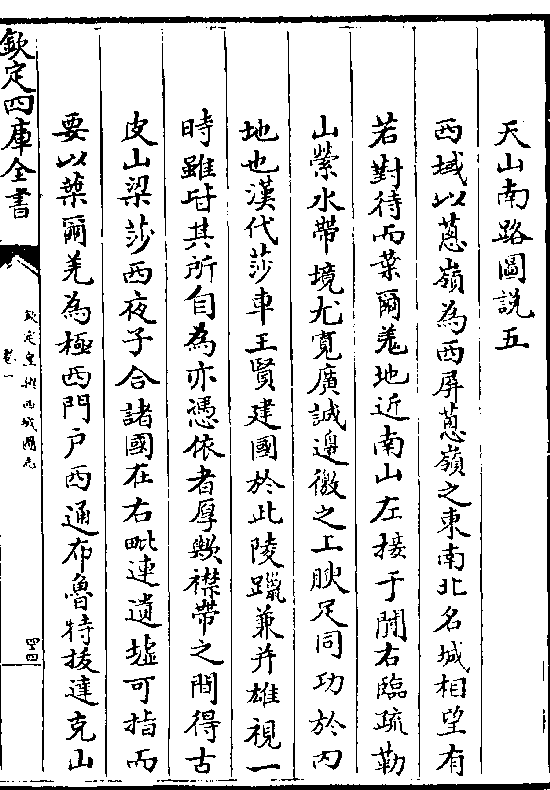 天山南路圖說五
西域以蔥嶺為西屏蔥嶺之東南北名城相望有
若對待而葉爾羌地近南山左接于闐右臨疏勒
山縈水帶境尤寛廣誠邊徼之上腴足同功於内
地也漢代莎車王賢建國於此陵躐兼并雄視一
時雖其所自為亦憑依者厚歟襟帶之間得古
皮山梁莎西夜子合諸國在右毗連遺墟可指而
要以葉爾羌為極西門户西通布魯特拔達克山
欽定四庫全書
欽定皇輿西域圖志
卷一
四四